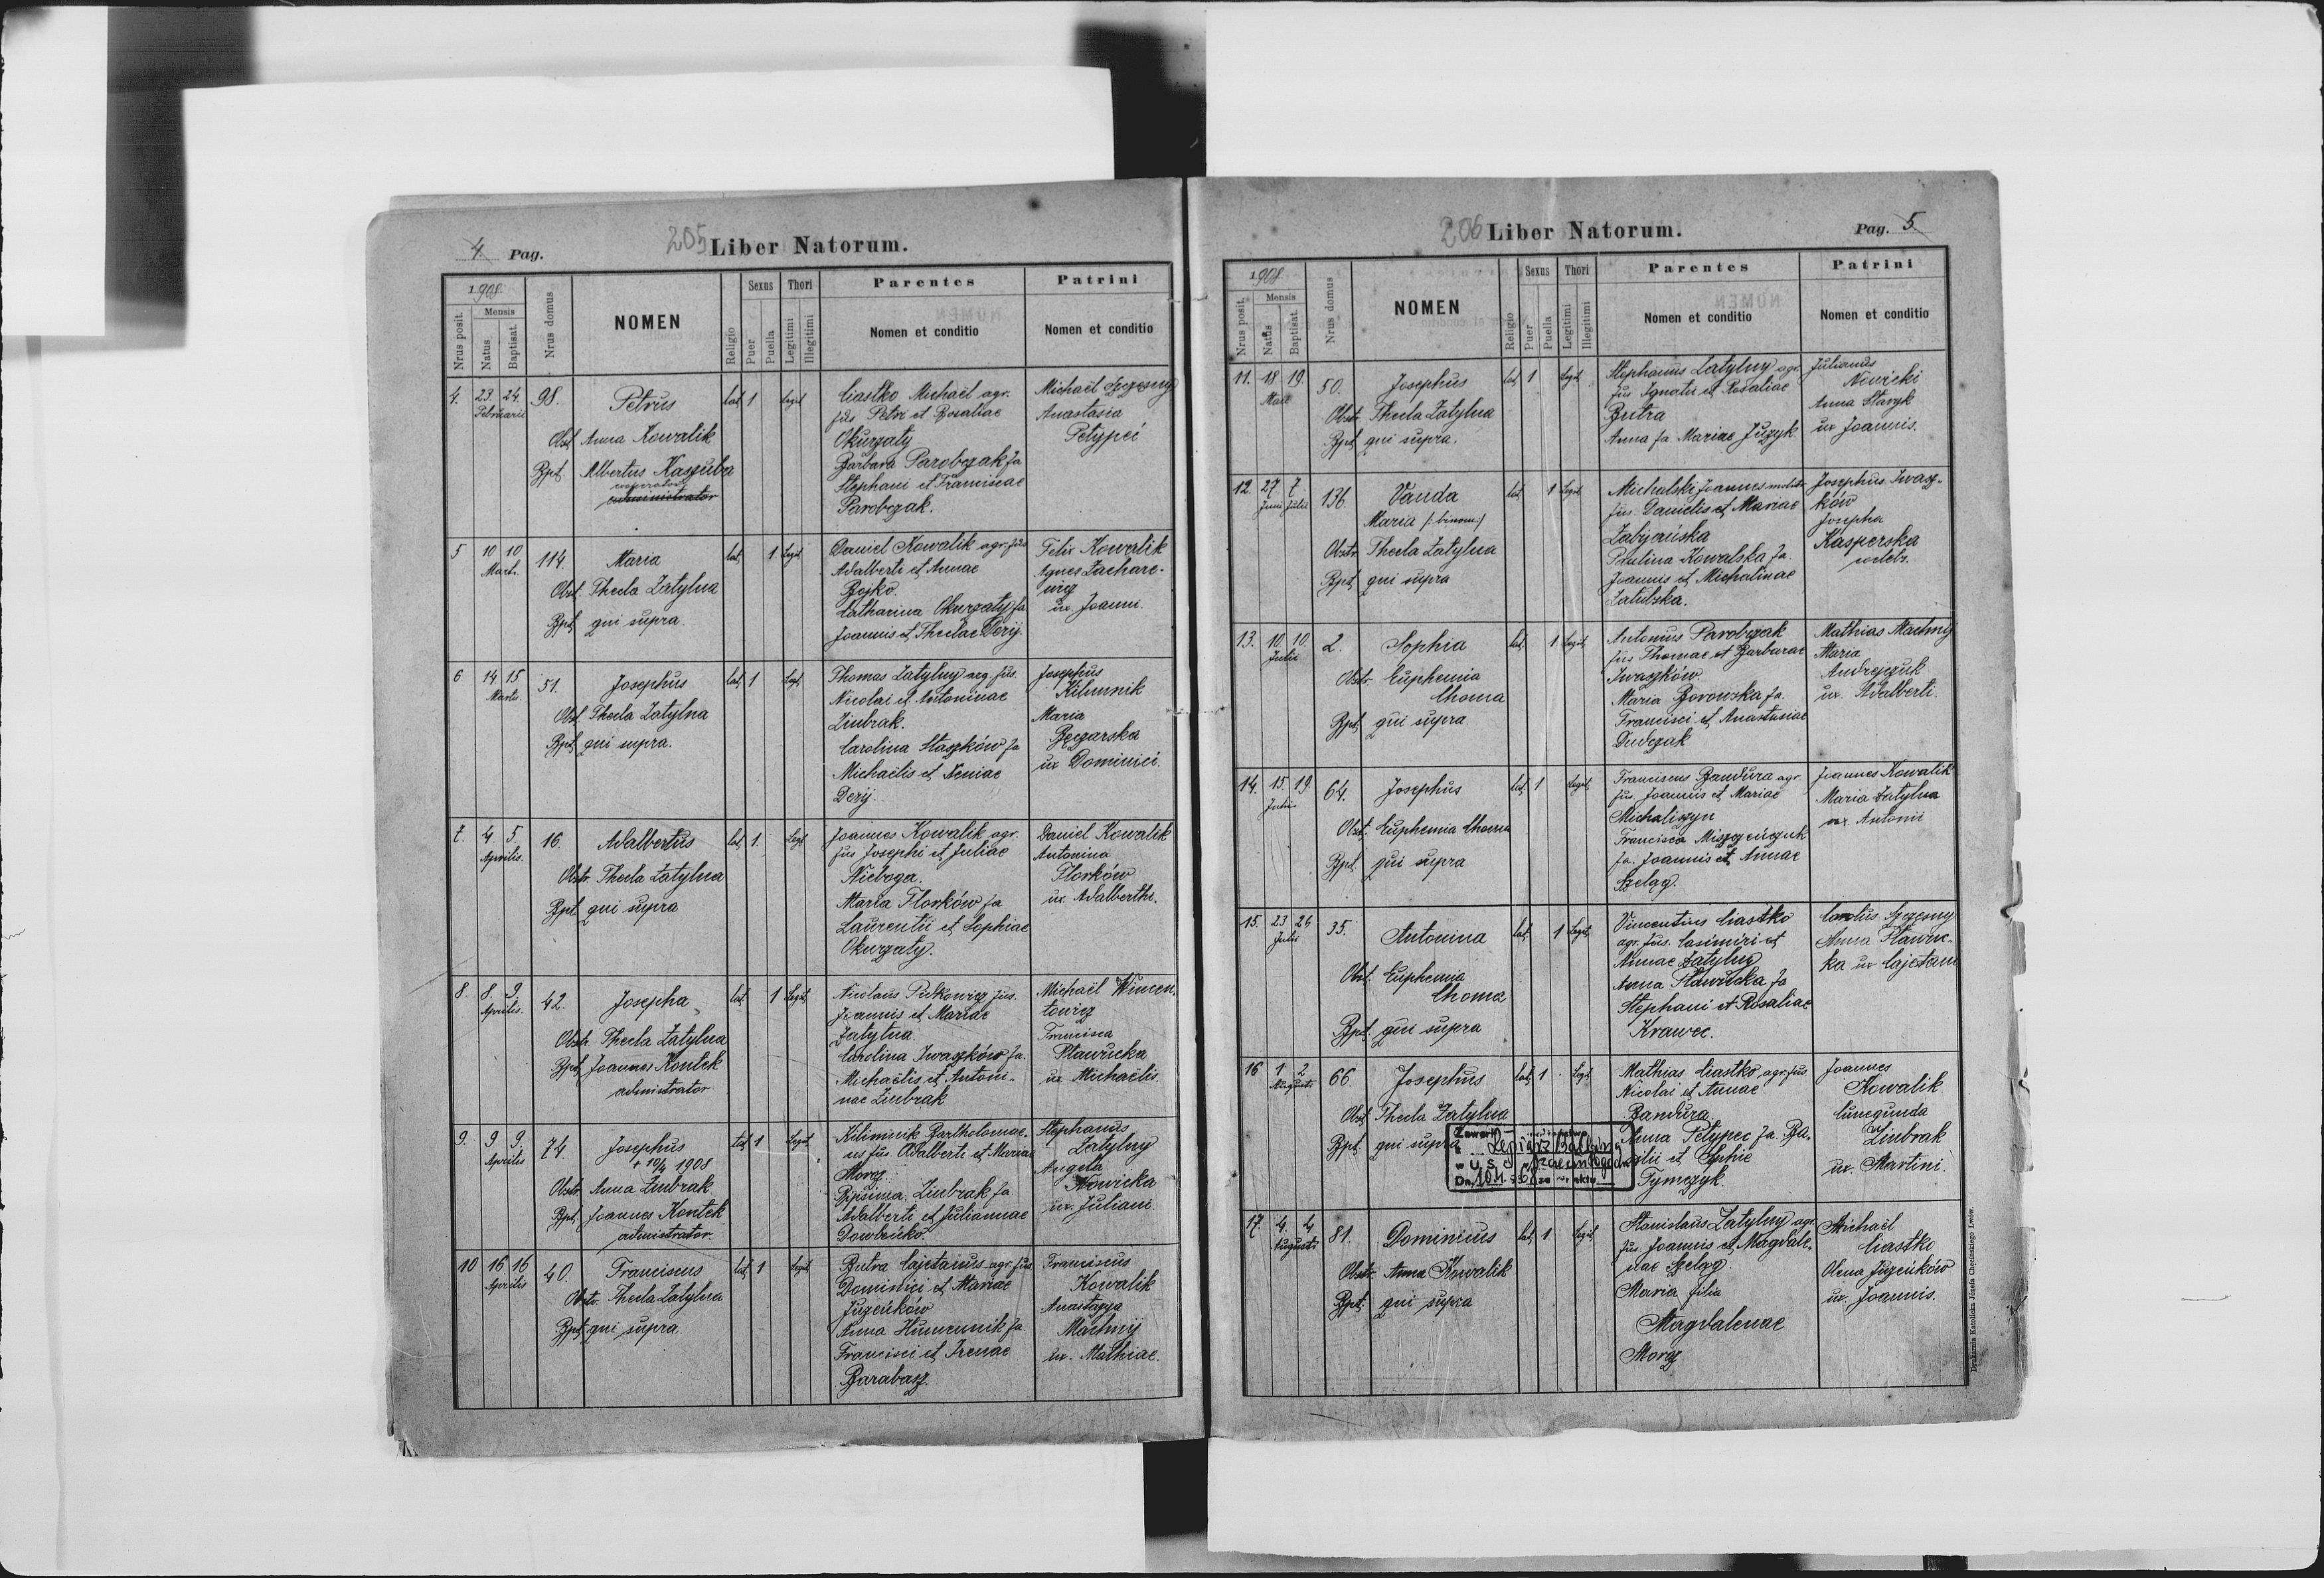 4 Pag.
205 Liber Natorum.
1908
Nrus posit.
Mensis
Natus
Baptisat.
Nrus domus
NOMEN
Religio
Sexus
Puer
Puella
Thori
Legitimi
Illegitimi
Parentes
Nomen et conditio
Patrini
Nomen et conditio
4. 23. 24. Februarii 98. Petrus lat. 1 Legit.
Obst. Anna Kowalik
Bpt. Albertus Kaszuba
cooperator
administrator
Ciastko Michaël agr.
fus Petri et Rosaliae
Okurzaty
Barbara Parobczak fa
Stephani et Franciscae
Parobczak.
Michaël Szczęsny
Anastasia
Petypeć
5 10 10 Marti. 114. Maria lat. 1 Legit.
Obst. Thecla Zatylna
Bpt. qui supra.
Daniel Kowalik agr. fus
Adalberti et Annae
Bojko.
Catharina Okurzaty fa
Joannis et Theclae Derij.
Felix Kowalik
Agnes Zachare-
wicz
ux. Joanni.
6 14 15 Marti. 51. Josephus lat. 1 Legit.
Obst. Thecla Zatylna
Bpt. qui supra.
Thomas Zatylny agr. fus.
Nicolai et Antoninae
Ziubrak.
Carolina Staszków fa
Michaëlis et Xeniae
Derij.
Josephus
Kilumnik
Maria
Bęczarska
ux Dominici.
7. 4 5. Aprilis. 16. Adalbertus lat. 1. Legit.
Obstr. Thecla Zatylna
Bpt. qui supra
Joannes Kowalik agr.
fus Josephi et Juliae
Nieboga.
Maria Florków fa
Laurentii et Sophiae
Okurzaty.
Daniel Kowalik
Antonina
Florków
ux. Adalberthi.
8. 8. 9. Aprilis. 42. Josepha lat. 1 Legit.
Obstr. Thecla Zatylna
Bpt. Joannes Kontek
administrator
Nicolaus Putkowicz fus.
Joannis et Mariae
Zatylna.
Carolina Iwaszków fa.
Michaëlis et Antoni-
nae Ziubrak
Michaël Wincen-
towicz
Francisca
Pławucka
ux. Michaëlis.
9. 9 9. Aprilis 74. Josephus lat. 1 Legit.
+ 10/4 1908
Obstr. Anna Ziubrak
Bpt. Joannes Kontek
administrator.
Kilimnik Bartholomae-
us fus. Adalberti et Mariae
Moroz.
Ripsima Ziubrak fa.
Adalberti et Juliannae
Dowbeńko.
Stephanus
Zatylny
Angela
Nowicka
ux. Juliani.
10 16 16 Aprilis 40. Franciscus lat. 1 Legit.
Obstr. Thecla Zatylna
Bpt. qui supra.
Butra Cajetanus agr. fus
Dominici et Mariae
Juzeńków
Anna Humennik fa
Francisci et Irenae
Barabasz.
Franciscus
Kowalik
Anastazya
Machnij
ux. Mathiae.
206 Liber Natorum.
Pag. 5
1908
Nrus posit.
Mensis
Natus
Baptisat.
Nrus domus
NOMEN
Religio
Sexus
Puer
Puella
Thori
Legitimi
Illegitimi
Parentes
Nomen et conditio
Patrini
Nomen et conditio
11. 18 19. Maii 50. Josephus lat. 1 Legit.
Obst. Thecla Zatylna
Bpt. qui supra.
Stephanus Zatylny agr.
fus Ignatii et Rosaliae
Butra
Anna fa Mariae Juzyk.
Julianus
Nowicki
Anna Staryk
ux Joannis.
12. 27 7 Juni Julii 136. Vanda lat. 1 Legit.
Maria /: binom :/
Obstr. Thecla Zatylna
Bpt. qui supra
Michalski Joannes molit.
fus. Danielis et Mariae
Zabijańska
Paulina Kowalska fa.
Joannis et Michalinae
Zatulska.
Josephus Iwasz-
ków
Josepha
Kasperska
coelebs.
13. 10. 10. Julii 2. Sophia lat. 1 Legit.
Obstr. Euphemia
Choma
Bpt. qui supra
Antonius Parobczak
fus Thomae et Barbarae
Iwaszków.
Maria Borowska fa.
Francisci et Anastasiae
Dudczak
Mathias Machnij
Maria
Andrejczuk
ux. Adalberti.
14. 15. 19. Julii 64. Josephus lat. 1 Legit.
Obst. Euphemia Choma
Bpt. qui supra
Franciscus Bandura agr.
fus. Joannis et Mariae
Michaliszyn
Francisca Miszczeńczuk
fa. Joannis et Annae
Szeląg.
Joannes Kowalik
Maria Zatylna
ux. Antonii
15. 23 24 Julii 35. Antonina lat. 1 Legit.
Obst. Euphemia
Choma
Bpt. qui supra
Vincentius Ciastko
agr. fus. Casimiri et
Annae Zatylny
Anna Pławucka fa
Stephani et Rosaliae
Krawec.
Carolus Szczęsny
Anna Pławuc-
ka ux Cajetani
16 1 2 Augusti 66 Josephus lat. 1 Legit.
Obst. Thecla Zatylna
Bpt. qui supra
Mathias Ciastko agr. fus
Nicolai et Annae
Bandura.
Anna Petypec fa. Ba-
silii et Sophie
Tymczyk.
Joannes
Kowalik
Cunegunda
Ziubrak
ux. Martini.
Zawarł
w U. S.
17. 4. 4 Augusti 81. Dominicus lat. 1 Legit.
Obstr. Anna Kowalik
Bpt. qui supra
Stanislaus Zatylny agr.
fus. Joannis et Magdale-
nae Szeląg.
Maria filia
Magdalenae
Moroz.
Michaël
Ciastko
Olena Juzeńków
ux. Joannis.
Drukarnia Katolicka Józefa Chęcińskiego Lwów.